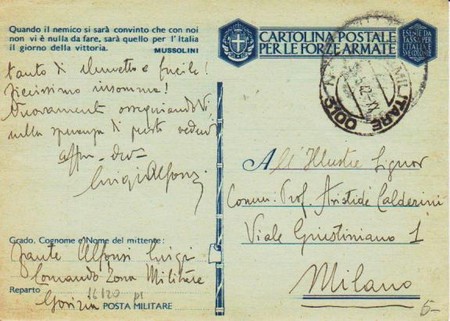 Quando il nemico si sarà convinto che con noi
non vi è nulla da fare, sarà quello per l'Italia
il giorno della vittoria. MUSSOLINI
CARTOLINA POSTALE
PER LE FORZE ARMATE
tanto di elmetto e fucile!
Ficissimo insomma!
Nuovamente ossequiandoVi,
nella speranza di presto vederVi
aff.mo dev.
Luigi Alfonsi
Grado, Cognome e Nome del mittente:
Fante Alfonsi Luigi
Comando Zona Militare
Reparto
Gorizia
POSTA MILITARE
All'Illustre Signor
Comm. Prof. Aristide Calderini
Viale Giustiniano 1
Milano